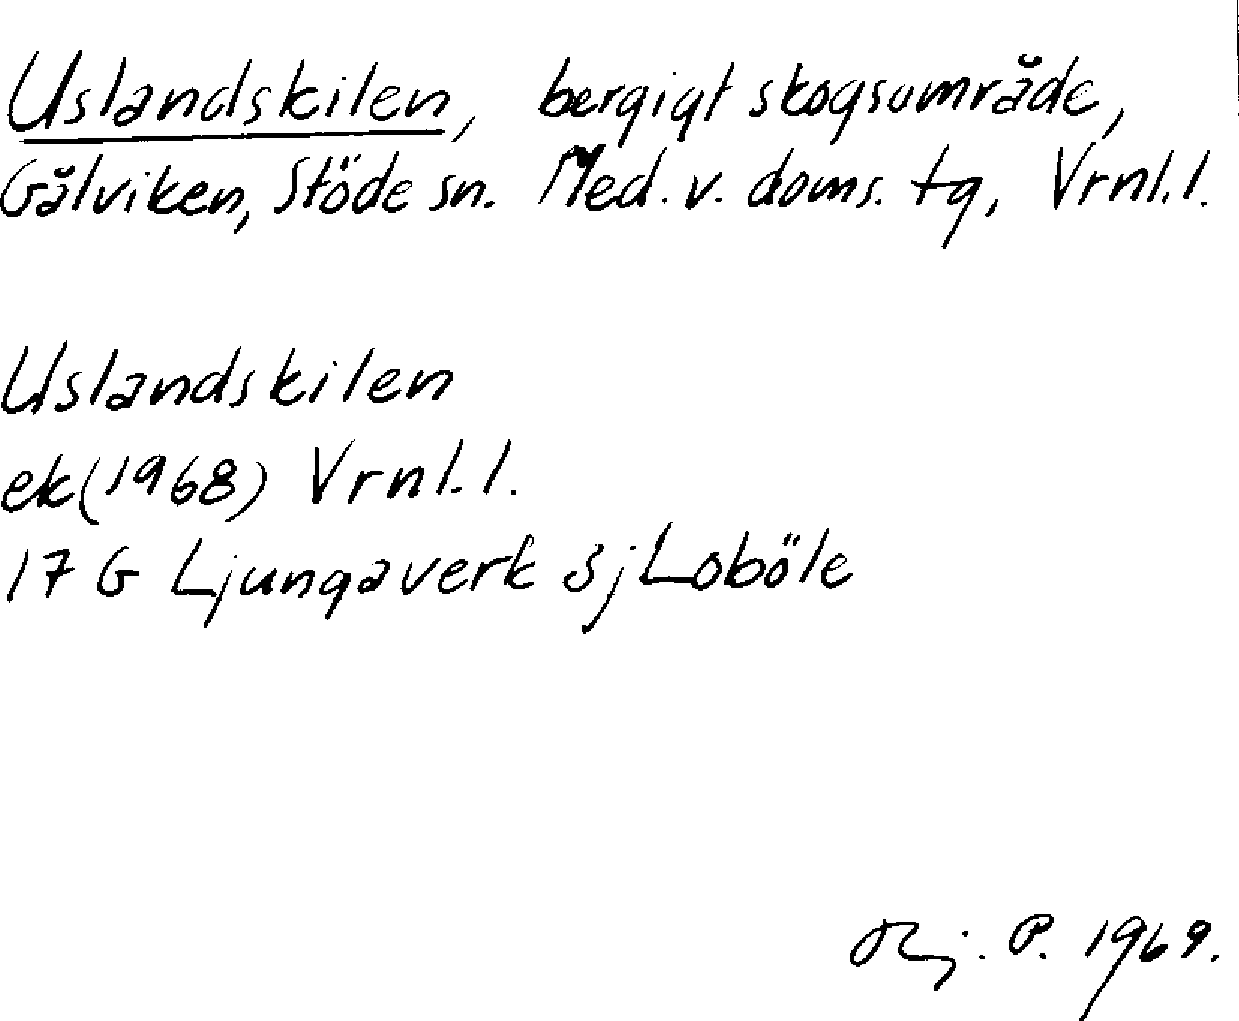 Uslandskilen, bergigt skogsområde,
Gålviken, Stöde sn. Med. v. doms. tg, Vrnl. l.
Uslandskilen
ek (1968) Vrnl. l.
17 G Ljungaverk Sj Loböle
P. 1969.